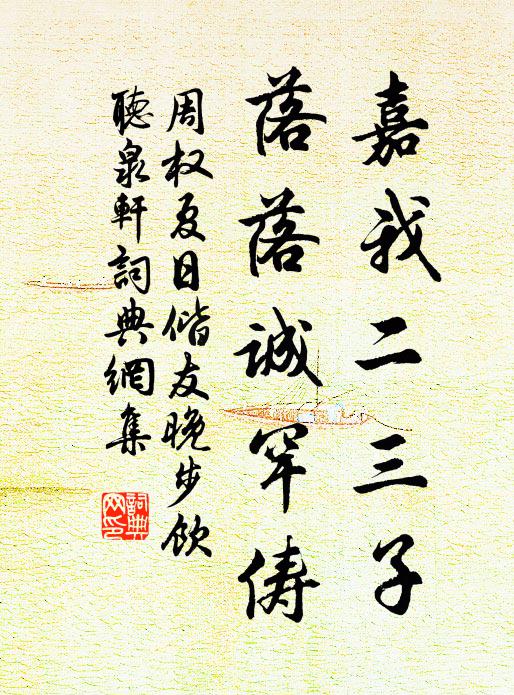 嘉我二三子
落落誠罕儔
周权夏日偕友晚步飲
聽泉軒詞典網集
詞典
网印